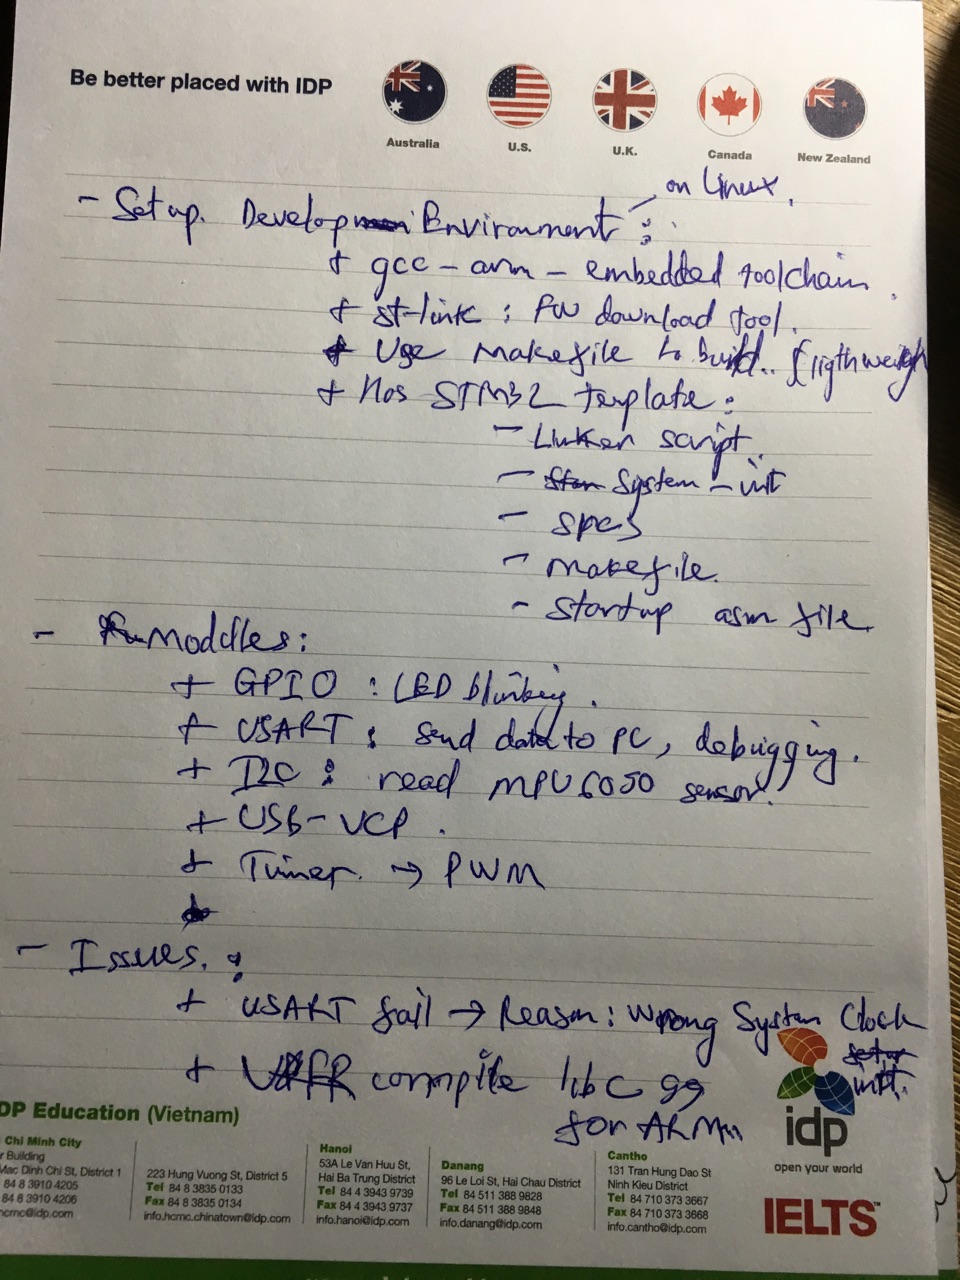 Be better placed with IDP
Australia
U.S.
U.K.
Canada
New Zealand
on Linux.
- Setup. Develop Environment :
+ gcc - arm - embedded toolchain.
+ st-link : FW download tool.
+ Use makefile to build.. (ligthweigh
+ Has STM32 template :
- Linker script.
- System - init
- specs
- makefile.
- Startup asm file.
- Moddles :
+ GPIO : LED blinking.
+ USART : send data to PC, debugging.
+ I2C : read MPU6050 sensor.
+ USB-VCP.
+ Timer. → PWM
- Issues. :
+ USART fail → Reason : Wrong System Clock
init.
+ compile libC
for ARM
idp
open your world
IELTS™
DP Education (Vietnam)
Chi Minh City
r Building
Mac Dinh Chi St, District 1
84 8 3910 4205
84 8 3910 4206
hcmc@idp.com
223 Hung Vuong St, District 5
Tel 84 8 3835 0133
Fax 84 8 3835 0134
info.hcmc.chinatown@idp.com
Hanoi
53A Le Van Huu St,
Hai Ba Trung District
Tel 84 4 3943 9739
Fax 84 4 3943 9737
info.hanoi@idp.com
Danang
96 Le Loi St, Hai Chau District
Tel 84 511 388 9828
Fax 84 511 388 9848
info.danang@idp.com
Cantho
131 Tran Hung Dao St
Ninh Kieu District
Tel 84 710 373 3667
Fax 84 710 373 3668
info.cantho@idp.com